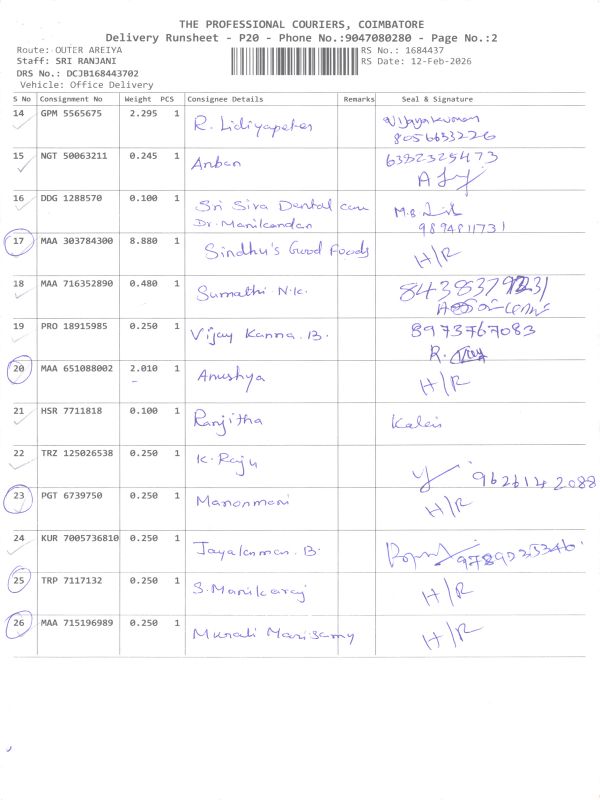 THE PROFESSIONAL COURIERS, COIMBATORE
Delivery Runsheet - P20 - Phone No.:9047080280 - Page No.:2
Route: OUTER AREIYA
RS No.: 1684437
Staff: SRI RANJANI
RS Date: 12-Feb-2026
DRS No.: DCJB168443702
Vehicle: Office Delivery
S No Consignment No Weight PCS Consignee Details Remarks Seal & Signature
14 GPM 5565675 2.295 1 R. Lidiyapeter Vijayakumar
8056633226
15 NGT 50063211 0.245 1 Anban 6382325473
16 DDG 1288570 0.100 1 Sri Siva Dental care
Dr. Manikandan 9894811731
17 MAA 303784300 8.880 1 Sindhu's Good Foods H/R
18 MAA 716352890 0.480 1 Sumathi N.K.
19 PRO 18915985 0.250 1 Vijay Kanna. B. 8973767083
R.
20 MAA 651088002 2.010 1 Anushya H/R
21 HSR 7711818 0.100 1 Ranjitha Kalai
22 TRZ 125026538 0.250 1 K. Raju 9626142088
23 PGT 6739750 0.250 1 Manonmani H/R
24 KUR 7005736810 0.250 1 Jayakumar. B. 9789233346
25 TRP 7117132 0.250 1 S. Manikaraj H/R
26 MAA 715196989 0.250 1 Murali Marisamy H/R